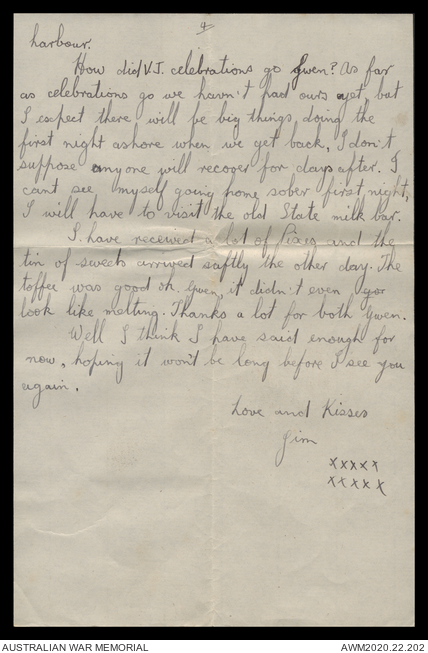 4
harbour.
How did V.J. celebrations go Gwen? As far
as celebrations go we havn't had ours yet, but
I expect there will be big things doing the
first night ashore when we get back, I don't
suppose anyone will recover for days after. I
cant see myself going home sober first night,
I will have to visit the old State milk bar.
I have received a lot of Pixes and the
tin of sweets arrived saftly the other day. The
toffee was good ok. Gwen, it didn't even
look like melting. Thanks a lot for both Gwen.
Well I think I have said enough for
now, hoping it won't be long before I see you
again.
Love and Kisses
Jim
xxxxx
xxxxx
AUSTRALIAN WAR MEMORIAL
AWM2020.22.202